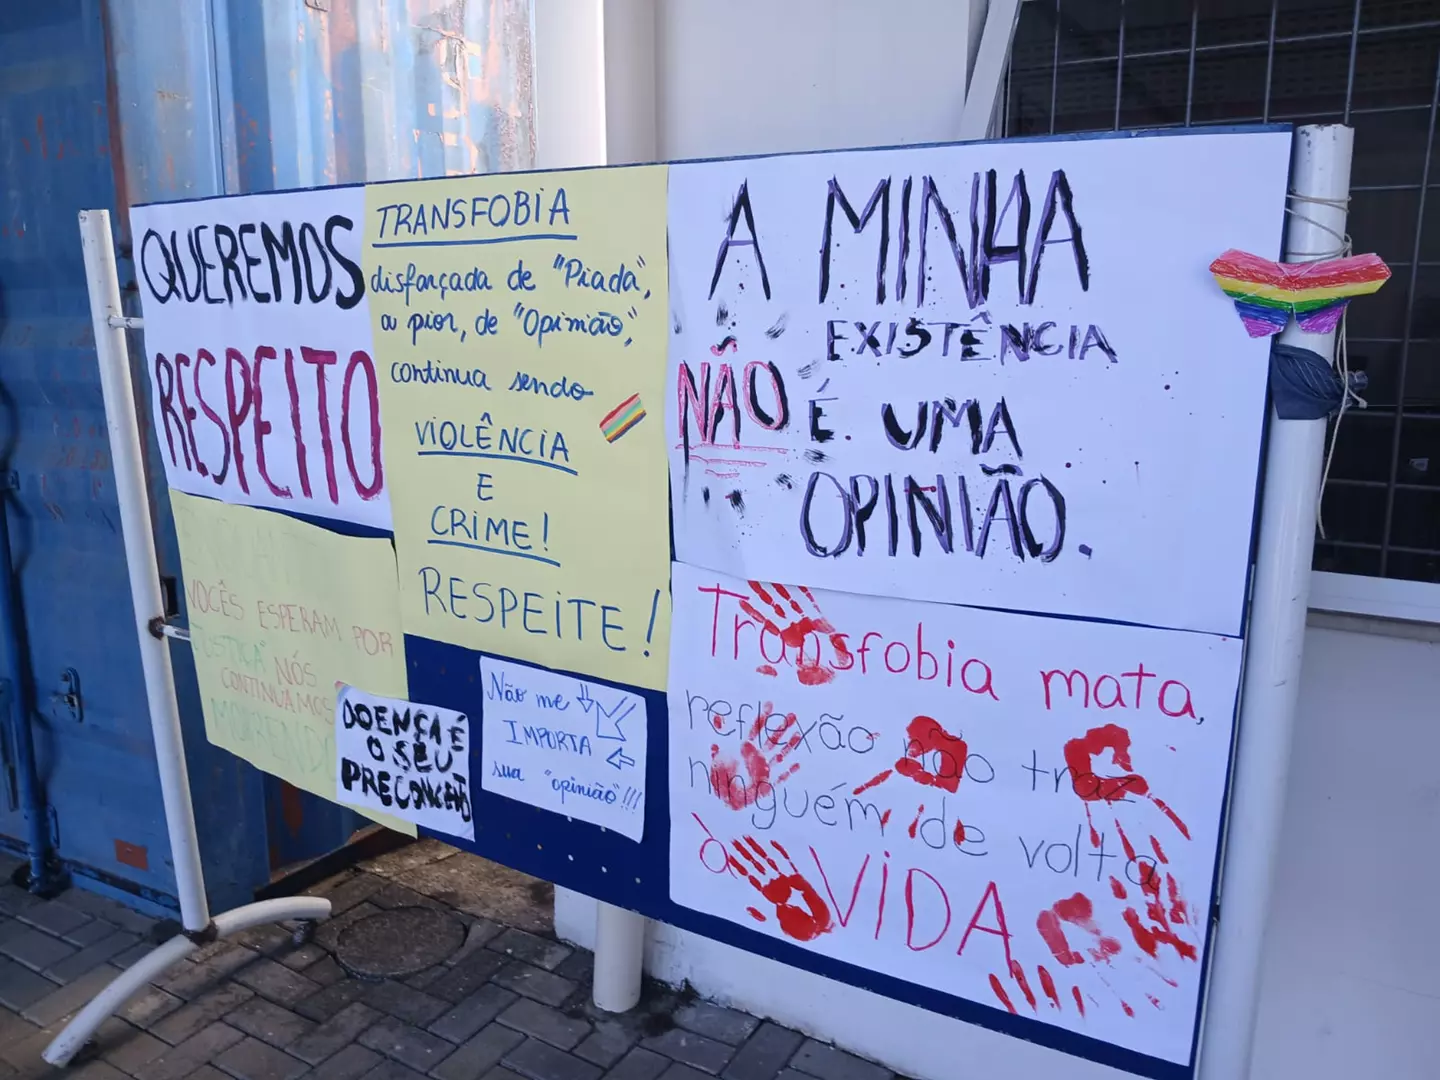 QUEREMOS
RESPEITO
TRANSFOBIA
disfarçada de "Piada",
ou pior, de "Opinião",
continua sendo
VIOLÊNCIA
E
CRIME!
RESPEITE!
A MINHA
EXISTÊNCIA
NÃO É UMA
OPINIÃO.
ENQUANTO
VOCÊS ESPERAM POR
JUSTIÇA NÓS
CONTINUAMOS
MORRENDO
DOENÇA É
O SEU
PRECONCEITO
Não me
IMPORTA
sua "opinião"!!!
Transfobia mata,
reflexão não traz
ninguém de volta
à VIDA